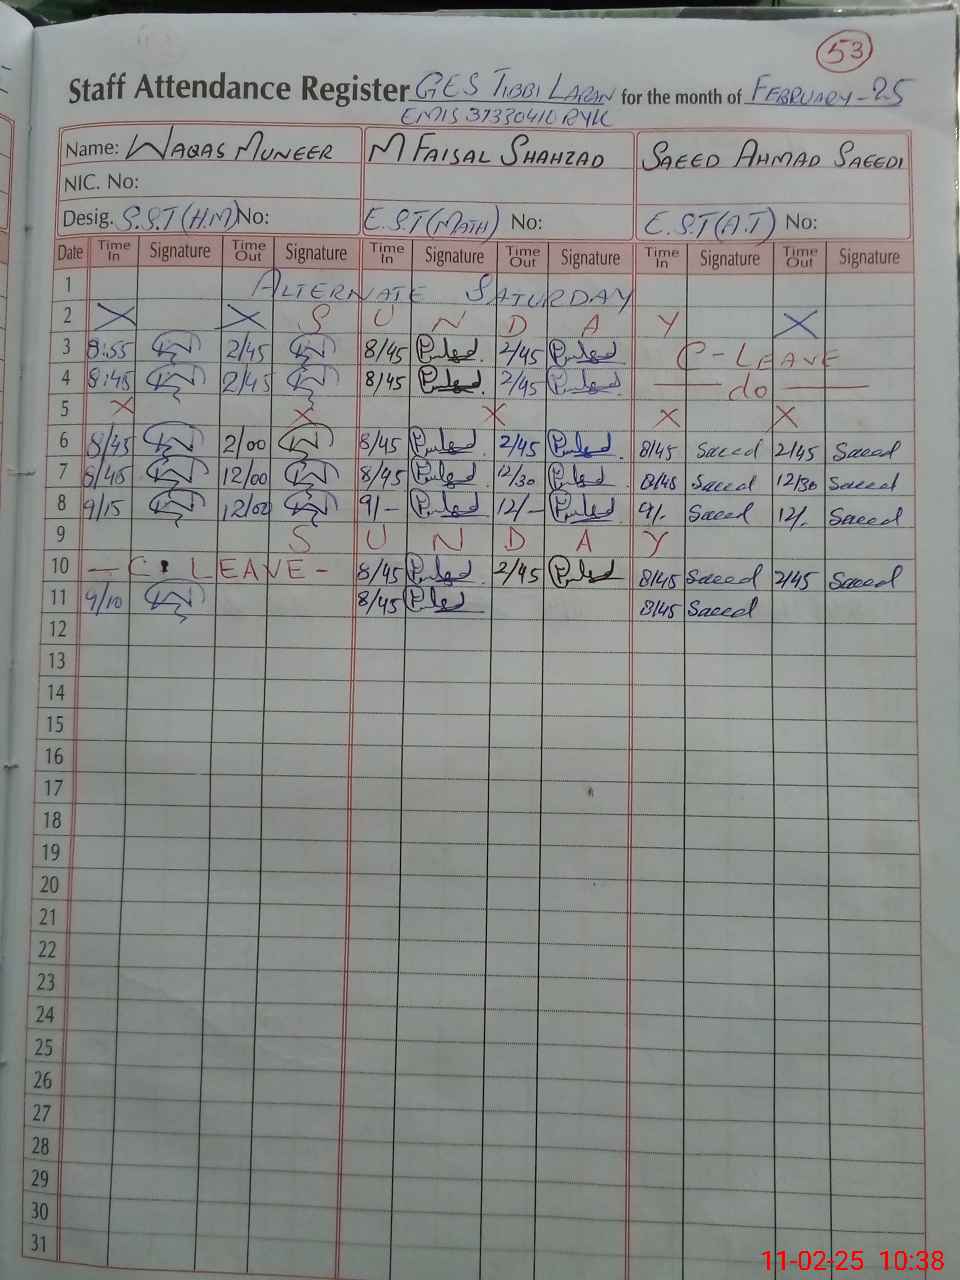 53
Staff Attendance Register GES TIBBI LARAN for the month of FEBRUARY-25
EMIS 31330410 RYK
Name: WAQAS MUNEER M FAISAL SHAHZAD SAEED AHMAD SAEEDI
NIC. No:
Desig. S.S.T(H.M) No: E.S.T(MATH) No: E.S.T(A.T) No:
Date Time In Signature Time Out Signature Time In Signature Time Out Signature Time In Signature Time Out Signature
1 ALTERNATE SATURDAY
2 X X S U N D A Y X
3 8:55 2/45 8/45 2/45 C-LEAVE
4 8:45 2/45 8/45 2/45 — do —
5 X X X X X
6 8/45 2/00 8/45 2/45 8/45 Saeed 2/45 Saeed
7 8/45 12/00 8/45 12/30 8/45 Saeed 12/30 Saeed
8 9/15 12/00 9/- 12/- 9/- Saeed 12/- Saeed
9 S U N D A Y
10 — C. LEAVE - 8/45 2/45 8/45 Saeed 2/45 Saeed
11 9/10 8/45 8/45 Saeed
12
13
14
15
16
17
18
19
20
21
22
23
24
25
26
27
28
29
30
31
11-02-25 10:38